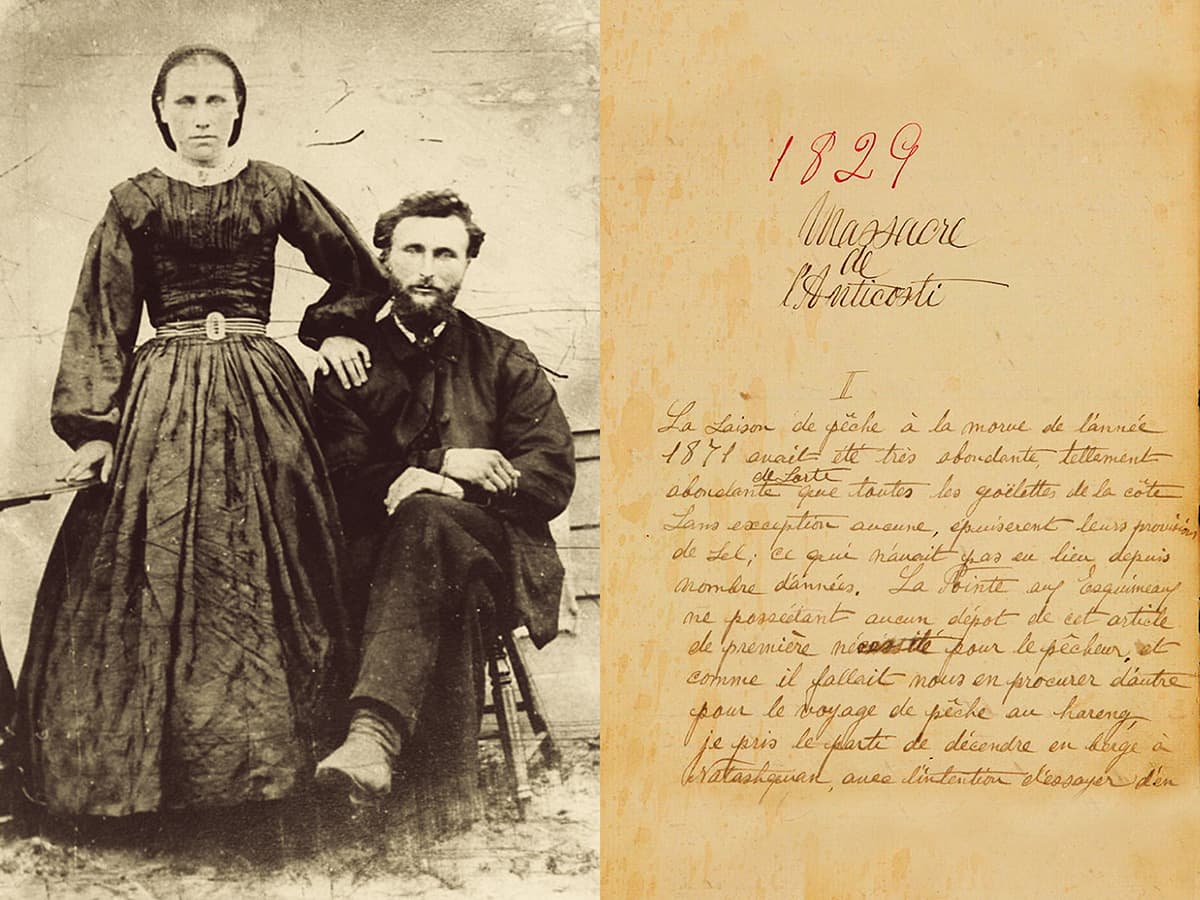 1829
Massacre
de
l'Anticosti
II
La Saison de pêche à la morue de l'année
1871 avait été très abondante, tellement
de Sorte
abondante que toutes les goëlettes de la côte
Sans exception aucune, épuisèrent leurs provisions
de Sel; ce qui n'avait pas eu lieu depuis
nombre d'années. La Pointe aux Esquimaux
ne possédant aucun dépot de cet article
de première nécessité pour le pêcheur, et
comme il fallait nous en procurer d'autre
pour le voyage de pêche au hareng,
je pris le parti de décendre en berge à
Natashquan, avec l'intention d'essayer d'en